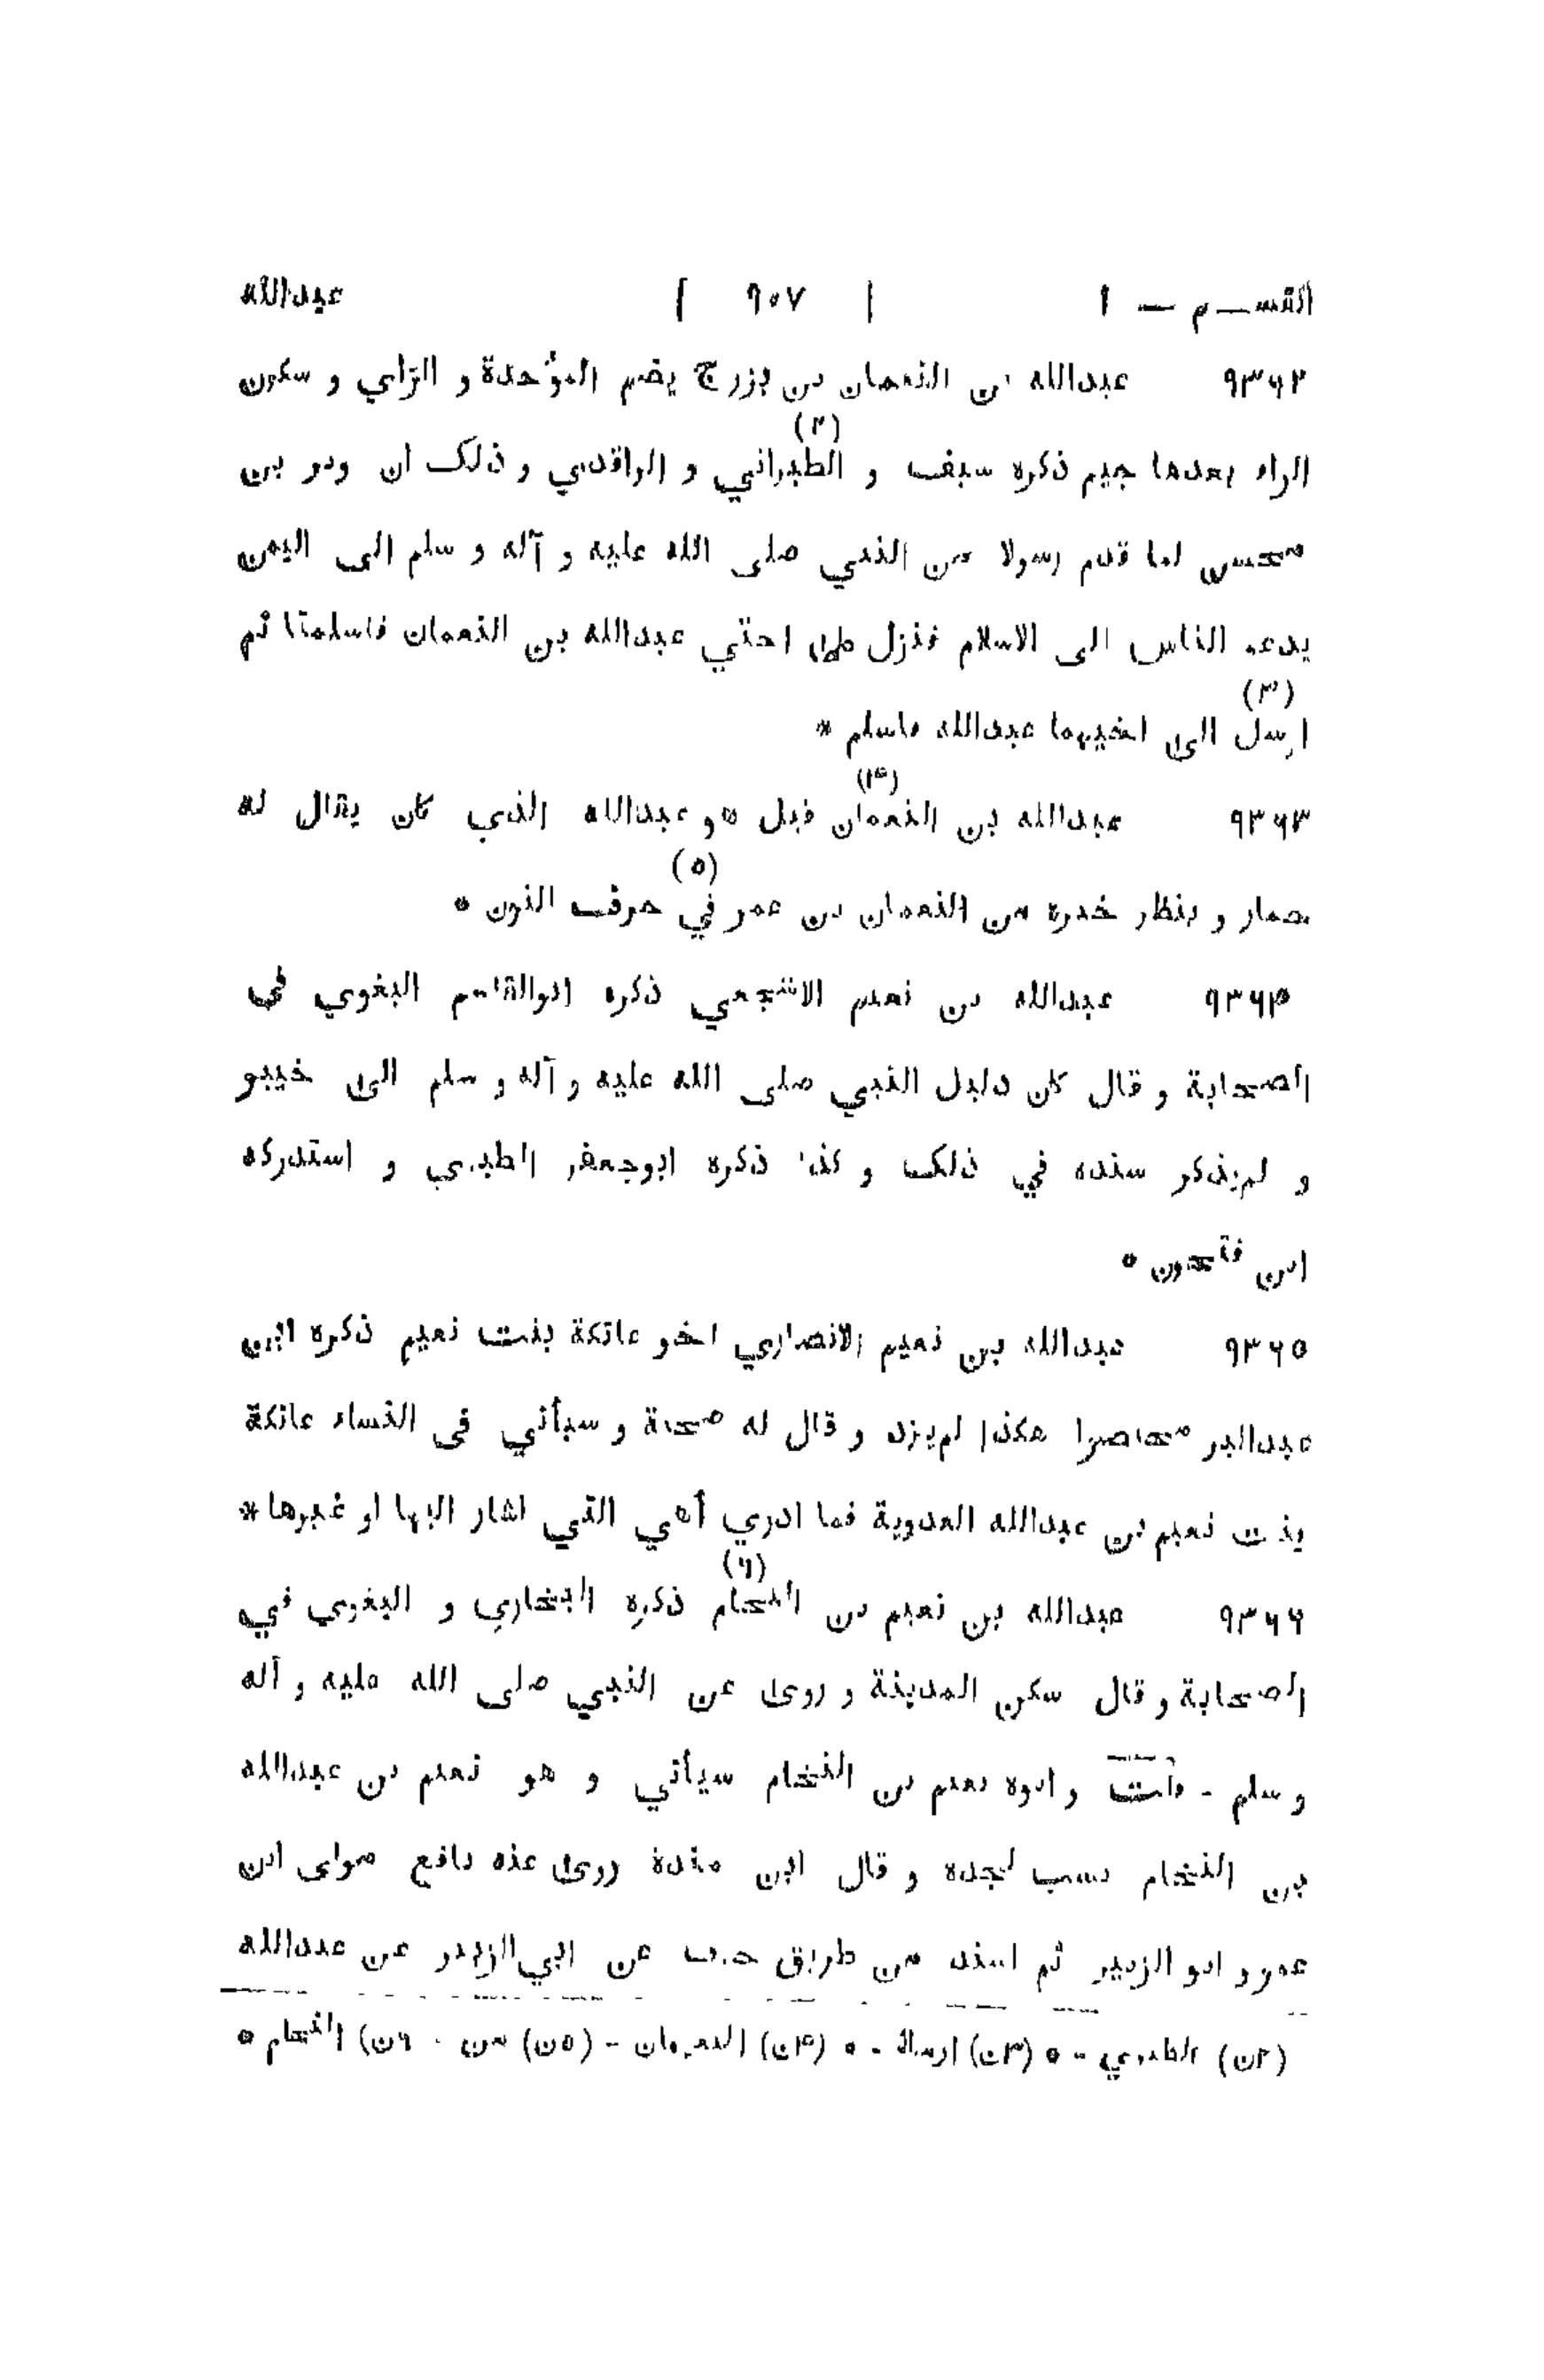 القســم — ١ | ٩٠٧ | عبدالله
٩٣٦٢ عبدالله بن النعمان بن بزرج بضم الموُحدة و الزاي و سكون
(٢)
الراء بعدها جيم ذكره سيف و الطبراني و الواقدي و ذلك ان وبر بن
محسن لما قدم رسولا من النبي صلى الله عليه و آله و سلم الى اليمن
يدعو الناس الى الاسلام فنزل على احتي عبدالله بن النعمان فاسلمتا ثم
(٣)
ارسل الى اخيهما عبدالله فاسلم *
(۴)
٩٣٦٣ عبدالله بن النعمان قيل هو عبدالله الذي كان يقال له
(٥)
حمار و ينظر خبره من النعمان بن عمر في حرف النون *
٩٣٦۴ عبدالله بن نعيم الاشجعي ذكره ابوالقاسم البغوي في
الصحابة و قال كان دليل النبي صلى الله عليه و آله و سلم الى خيبر
و لم‌يذكر سنده في ذلك و كذا ذكره ابوجعفر الطبري و استدركه
ابن فتحون *
٩٣٦٥ عبدالله بن نعيم الانصاري اخو عاتكة بنت نعيم ذكره ابن
عبدالبر مختصرا هكذا لم‌يزد و قال له صحبة و سيأتي فى النساء عاتكة
بنت نعيم بن عبدالله العدوية فما ادري أهي التي اشار اليها او غيرها *
(٦)
٩٣٦٦ عبدالله بن نعيم بن النحام ذكره البخاري و البغوي في
الصحابة و قال سكن المدينة و روى عن النبي صلى الله عليه و آله
و سلم - قلت و ابوه نعيم بن النخام سيأتي و هو نعيم بن عبدالله
بن النخام نسب لجده و قال ابن مندة روى عنه نافع مولى ابن
عمر و ابو الزبير ثم اسند من طريق عن ابي‌الزبير عن عبدالله
(٢ن) الطبري - * (٣ن) ارساله - * (۴ن) النعيمان - (٥ن) من - ٦ن) النحام *